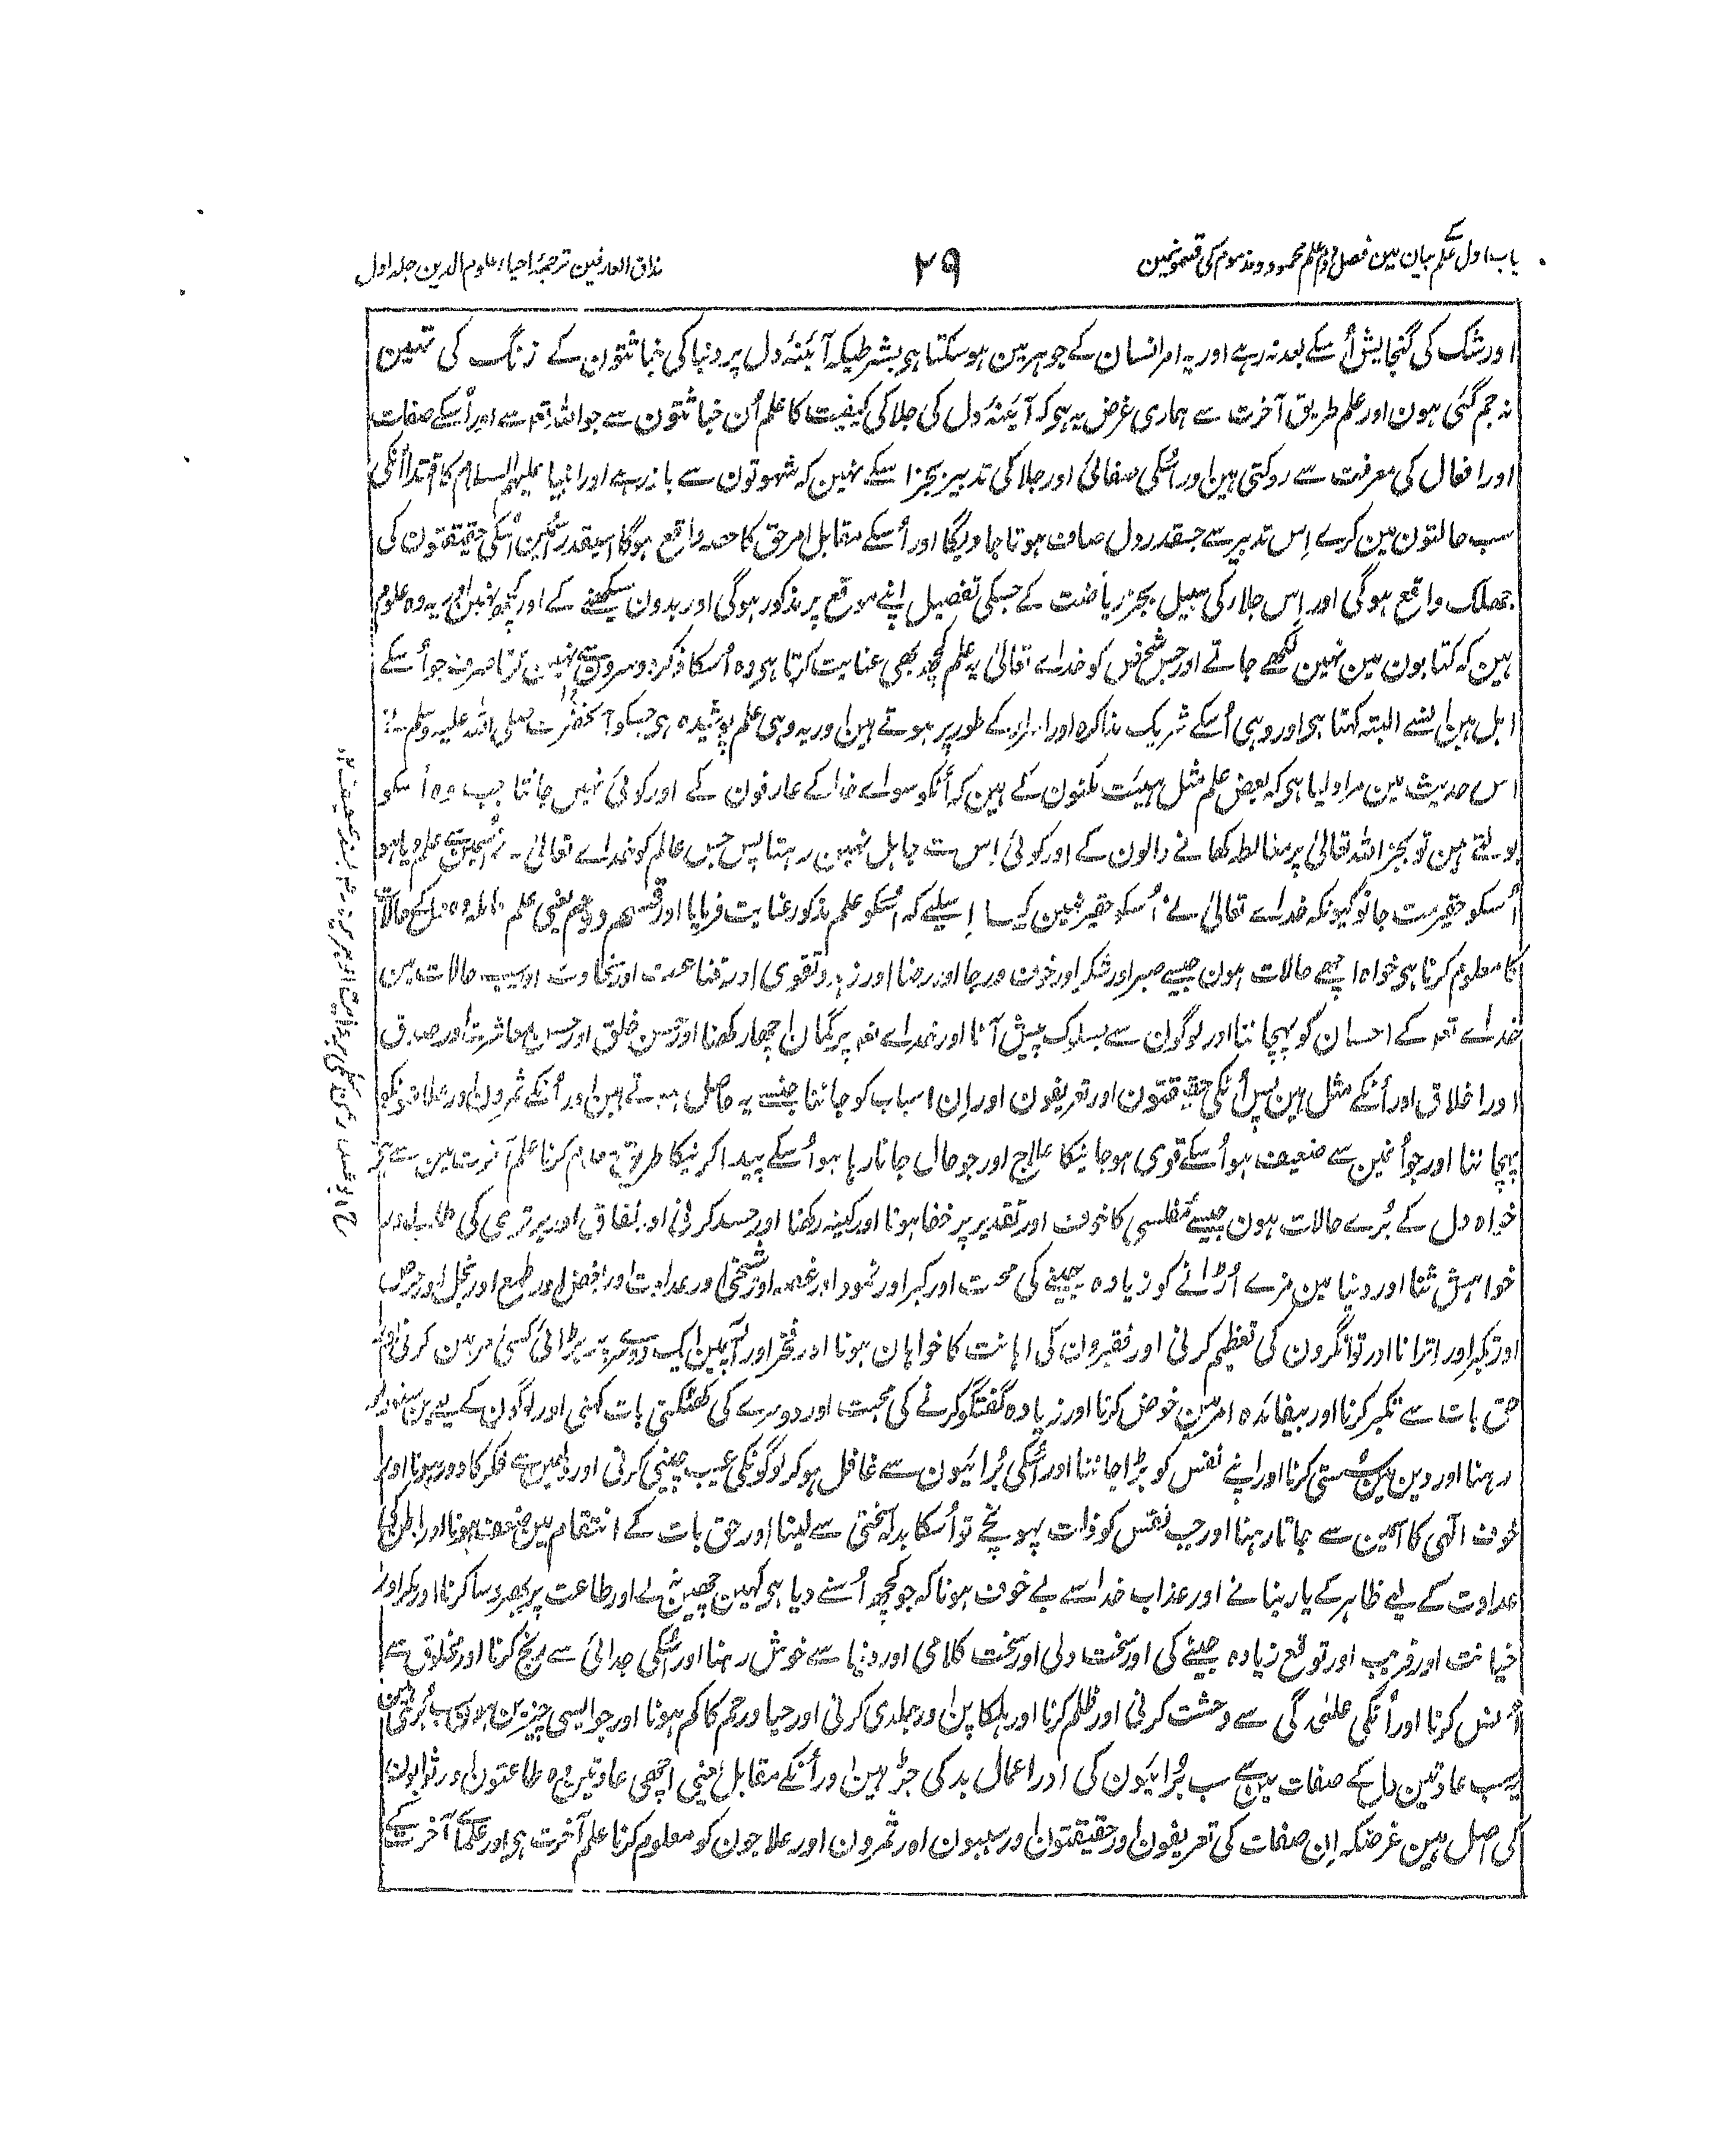 باب اول علم کے بیان مین فصل دوم علم محمود و مذموم کی قسمونمین
۲۹
مذاق العارفین ترجمۂ احیاء علوم الدین جلد اول
اور شک کی گنجایش اُسکے بعد نہ رہے اور یہ امر انسان کے جوہر مین ہو سکتا ہی بشرطیکہ آئینۂ دل پر دنیا کی خباثتون کے زنگ کی تہین
نہ جم گئی ہون اور علم طریق آخرت سے ہماری غرض یہ ہی کہ آئینۂ دل کی جلا کی کیفیت کا علم اُن خباثتون سے جو اللہ تعہ سے اور اُسکے صفات
اور افعال کی معرفت سے روکتی ہین اور اُسکی صفائی اور جلا کی تدبیر بجز اسکے نہین کہ شہوتون سے باز رہے اور انبیا علیہم السلام کا اقتدا اُنکی
سب حالتون مین کرے اِس تدبیر سے جسقدر دل صاف ہوتا جاویگا اور اُسکے مقابل امر حق کا حصہ واقع ہوگا اسیقدر اُسمین اُسکی حقیقتون کی
جھلک واقع ہوگی اور اِس جلا کی سبیل بجز ریاضت کے جسکی تفصیل اپنے موقع پر مذکور ہوگی اور بدون سیکھنے کے اور کچھ نہین اور یہ وہ علوم
ہین کہ کتابون مین نہین لکھے جاتے اور جس شخص کو خداے تعالیٰ یہ علم کچھ بھی عنایت کرتا ہی وہ اُسکا ذکر دوسرون سے نہین کرتا صرف جو اُسکے
اہل ہین اُنسے البتہ کہتا ہی اور وہی اُسکے شریک مذاکرہ اور اسرار کے طور پر ہوتے ہین اور یہ وہی علم پوشیدہ ہی جسکو آنحضرت صلی اللہ علیہ وسلم نے
اس حدیث مین مراد لیا ہی کہ بعض علم مثل ہیئت مکنون کے ہین کہ اُنکو سواے خدا کے عارفون کے اور کوئی نہین جانتا جب وہ اُسکو
بولتے ہین تو بجز اللہ تعالیٰ پر مغالطہ کھانے والون کے اور کوئی اِس سے جاہل نہین رہتا پس جس عالم کو خداے تعالیٰ نے اُسمین سے علم دیا ہو
اُسکو حقیر مت جانو کیونکہ خداے تعالیٰ نے اُسکو حقیر نہین کیا اِسلیے کہ اُسکو علم مذکور عنایت فرمایا اور قسم دوم یعنی علم معاملہ وہ دل کے حالات
کا معلوم کرنا ہی خواہ اچھے حالات ہون جیسے صبر اور شکر اور خوف و رجا اور رضا اور زہد و تقوی اور قناعت اور سخاوت اور سب حالات مین
خداے تعہ کے احسان کو پہچاننا اور لوگون سے بسلوک پیش آنا اور خداے تعہ پر گمان اچھا رکھنا اور حسن خلق اور حسن معاشرت اور صدق
اور اخلاق اور اُنکے مثل ہین پس اُنکی حقیقتون اور تعریفون اور اِن اسباب کو جاننا جنسے یہ حاصل ہوتے ہین اور اُنکے ثمرون اور علامتونکو
پہچاننا اور جو اُنمین سے ضعیف ہو اُسکے قوی ہو جانیکا علاج اور جو حال جاتا رہا ہو اُسکے پیدا کرنیکا طریق معلوم کرنا علم آخرت مین سے ہی
خواہ دل کے بُرے حالات ہون جیسے مفلسی کا خوف اور تقدیر پر خفا ہونا اور کینہ رکھنا اور حسد کرنی اور نفاق اور برتری کی طلب اور
خواہش ثنا اور دنیا مین مزے اُڑانے کو زیادہ جینے کی محبت اور کبر اور نمود اور غصہ اور شیخی اور عداوت اور بغض اور طمع اور بخل اور حرص
اور تکبر اور اِترانا اور توانگرون کی تعظیم کرنی اور فقیرون کی اہانت کا خواہان ہونا اور فخر اور آپسمین ایک دوسرے پر بڑائی کسی امر مین کرنی اور
حق بات سے تکبر کرنا اور بیفائدہ امر مین خوض کرنا اور زیادہ گفتگو کرنے کی محبت اور دوسرے کی کھٹکتی بات کہنی اور لوگون کے لیے بن سنور کر
رہنا اور دین مین سستی کرنا اور اپنے نفس کو بڑا جاننا اور اُسکی بُرائیون سے غافل ہو کر لوگونکی عیب چینی کرنی اور دلمین سے فکر کا دور ہونا اور
خوف الٰہی کا اُسمین سے جاتا رہنا اور جب نفس کو ذلت پہونچے تو اُسکا بدلہ سختی سے لینا اور حق بات کے انتقام مین ضعف ہونا اور باطن کی
عداوت کے لیے ظاہر کے یار بنانے اور عذاب خدا سے بے خوف ہونا کہ جو کچھ اُسنے دیا ہی کہین چھین نہ لے اور طاعت پر بھروسا کرنا اور مکر اور
خیانت اور فریب اور توقع زیادہ جینے کی اور سخت دلی اور سخت کلامی اور دنیا سے خوش رہنا اور اُسکی جدائی سے رنج کرنا اور مخلوق سے
اُنس کرنا اور اُنکی علٰحدگی سے وحشت کرنی اور ظلم کرنا اور ہلکا پن اور جلدی کرنی اور حیا و رحم کا کم ہونا اور جو ایسی چیزین ہون سب بُری ہین
یہ سب عادتین دل کے صفات مین سے سب بُرائیون کی اور اعمال بد کی جڑ ہین اور اُنکے مقابل یعنی اچھی عادتین وہ طاعتون اور ثوابون
کی اصل ہین غرضکہ اِن صفات کی تعریفون اور حقیقتون اور سببون اور ثمرون اور علاجون کو معلوم کرنا علم آخرت ہی اور علماے آخرت کے